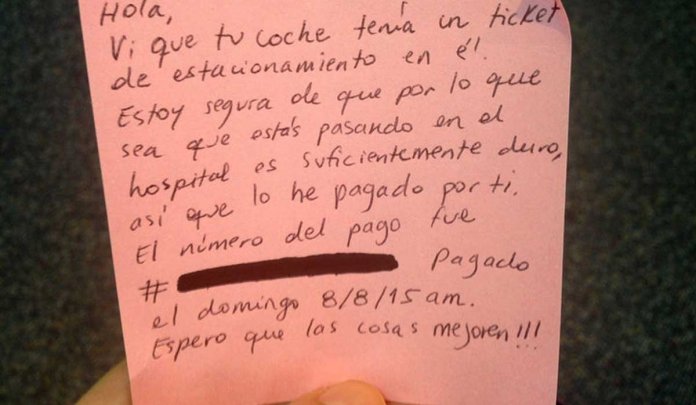 Hola,
Vi que tu coche tenía un ticket
de estacionamiento en él.
Estoy segura de que por lo que
sea que estás pasando en el
hospital es suficientemente duro,
así que lo he pagado por ti.
El número del pago fue
# pagado
el domingo 8/8/15 am.
Espero que las cosas mejoren!!!